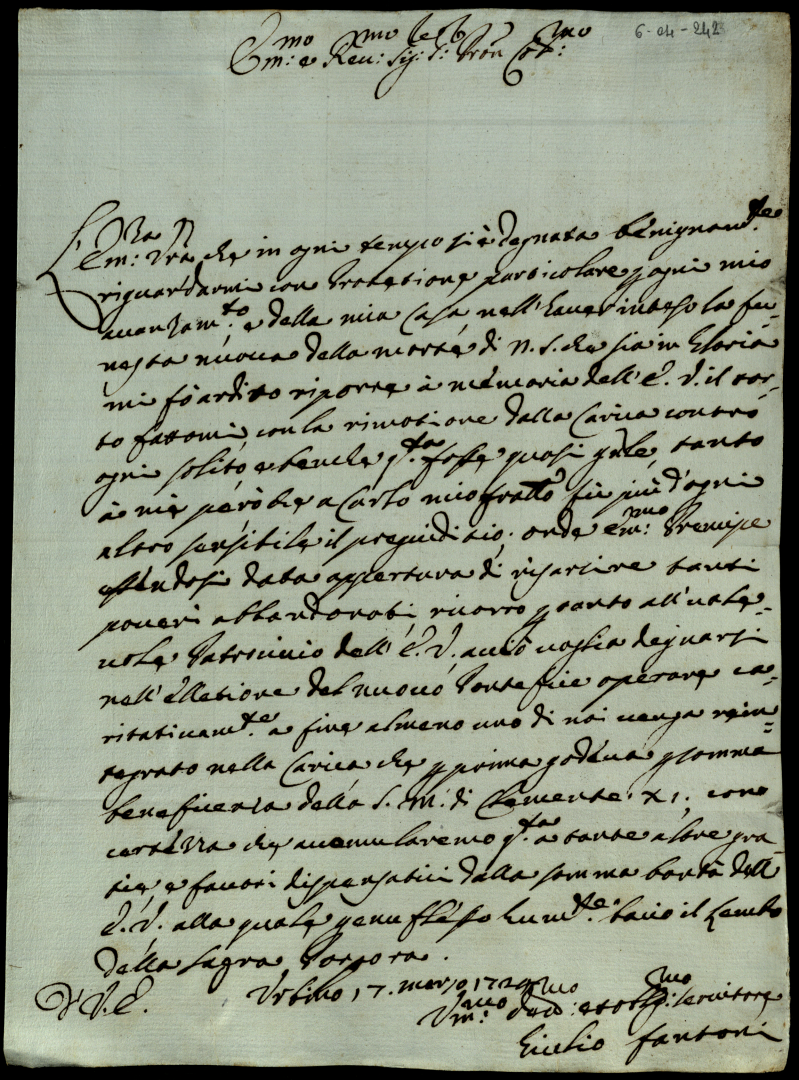 6-04-242
Em:mo e Reu:mo Sig: Pron Col:mo
L'Em:za Vra che in ogni tempo si è degnata benignam:te
riguardarmi con Protetione particolare p ogni mio
auanzam:to e della mia Casa nell'hauer inteso la fu-
nesta nuoua della morte di N. S. che sia in Gloria
mi fò ardito riporre à memoria dell'E. V. il tor-
to fattomi con la rimotione dalla Carica contro
ogni solito e benche q:ta fosse quasi gnle, tanto
à me però che a Carlo mio fratto fù più d'ogni
altro sensibile il pregiuditio; onde Em:mo Prencipe
essendosi data appertura di risarcire tanti
poueri abbandonati ricorro p tanto all'uale-
uole Patrocinio dell'E. V. acciò uoglia degnarsi
nell'Elletione del nuouo Pontefice operare ca-
ritatiuam:te a fine almeno uno di noi uenga rein=
tegrato nella Carica che p prima godeua p somma
beneficenza della S. M: di Clemente XI; con
certezza che accumularemo q:ta a tante altre gra
tie e fauori dispensatici dalla somma bontà dell
E. V. alla quale genuflesso hum:te bacio il lembo
della Sagra Porpora.
D. V. E. Urbino 17. marzo 1724
Um:mo Deu:mo et obb:mo seruitore
Giulio Fantoni